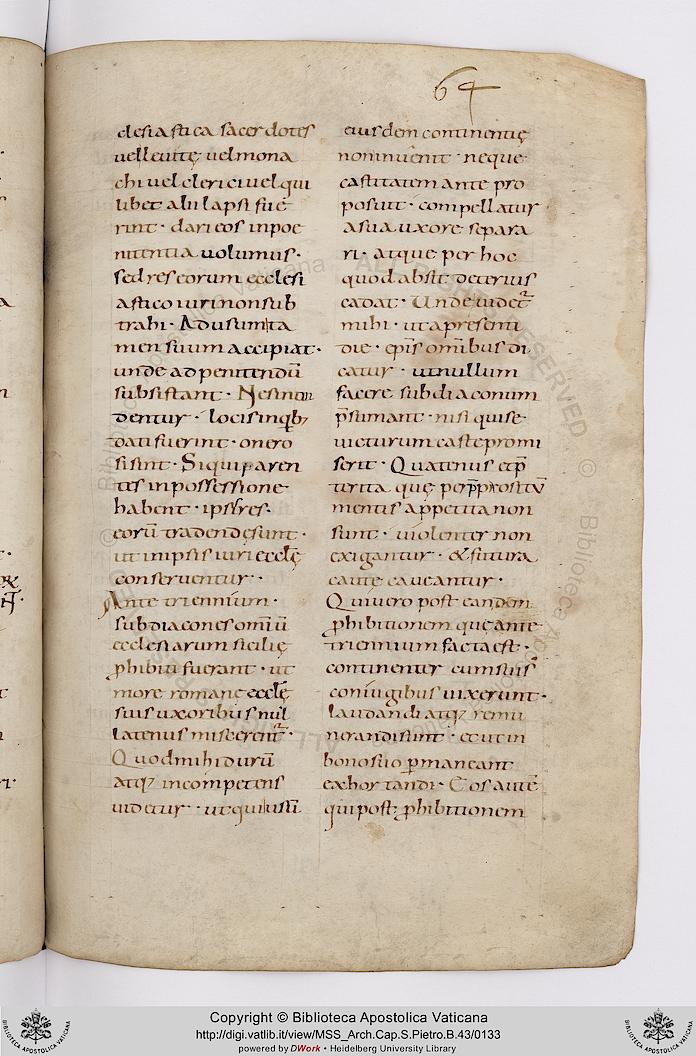 64
clesiastica sacerdotes
vel levitę vel mona
chi vel clerici vel qui
libet alii lapsi fue
rint · dari eos in poe
nitentia volumus ·
sed res eorum ecclesi
astico iuri non sub
trahi · Ad usum ita
men suum accipiat ·
unde ad penitendū
subsistant · Ne si nu
dentur · locis in qb;
dati fuerint · onero
si sint · Si qui paren
tes in possessione
habent · ipsi res
eorū tradendę sunt ·
ut in ipsis iuri ecclę
conserventur ·
Ante triennium ·
subdiacones omiū
ecclesiarum sicilię
phibiti fuerant · ut
more romane ecclę
suis uxoribus nul
latenus miscerent ·
Quod mihi durū
atq; incompetens
videtur · ut qui usū
eiusdem continentię
non invenit · neque
castitatem ante pro
posuit · compellatur
a sua uxore separa
ri · atque per hoc
quod absit deterius
cadat · Unde videt
mihi · ut a presenti
die · epis omībus di
catur · ut nullum
facere subdiaconum
psumant · nisi qui se
victurum caste promi
serit · Quatenus et p
terita quę
mentis appetita non
sunt · violenter non
exigantur · & futura
caute caveantur ·
Qui vero post eandem
phibitionem que ante
triennium facta est ·
continenter cum suis
coniugibus vixerunt ·
laudandi atq; remu
nerandi sunt · et ut in
bono suo pmaneant
exhortandi · Eos autē
qui post phibitionem
Copyright © Biblioteca Apostolica Vaticana
http://digi.vatlib.it/view/MSS_Arch.Cap.S.Pietro.B.43/0133
powered by DWork • Heidelberg University Library